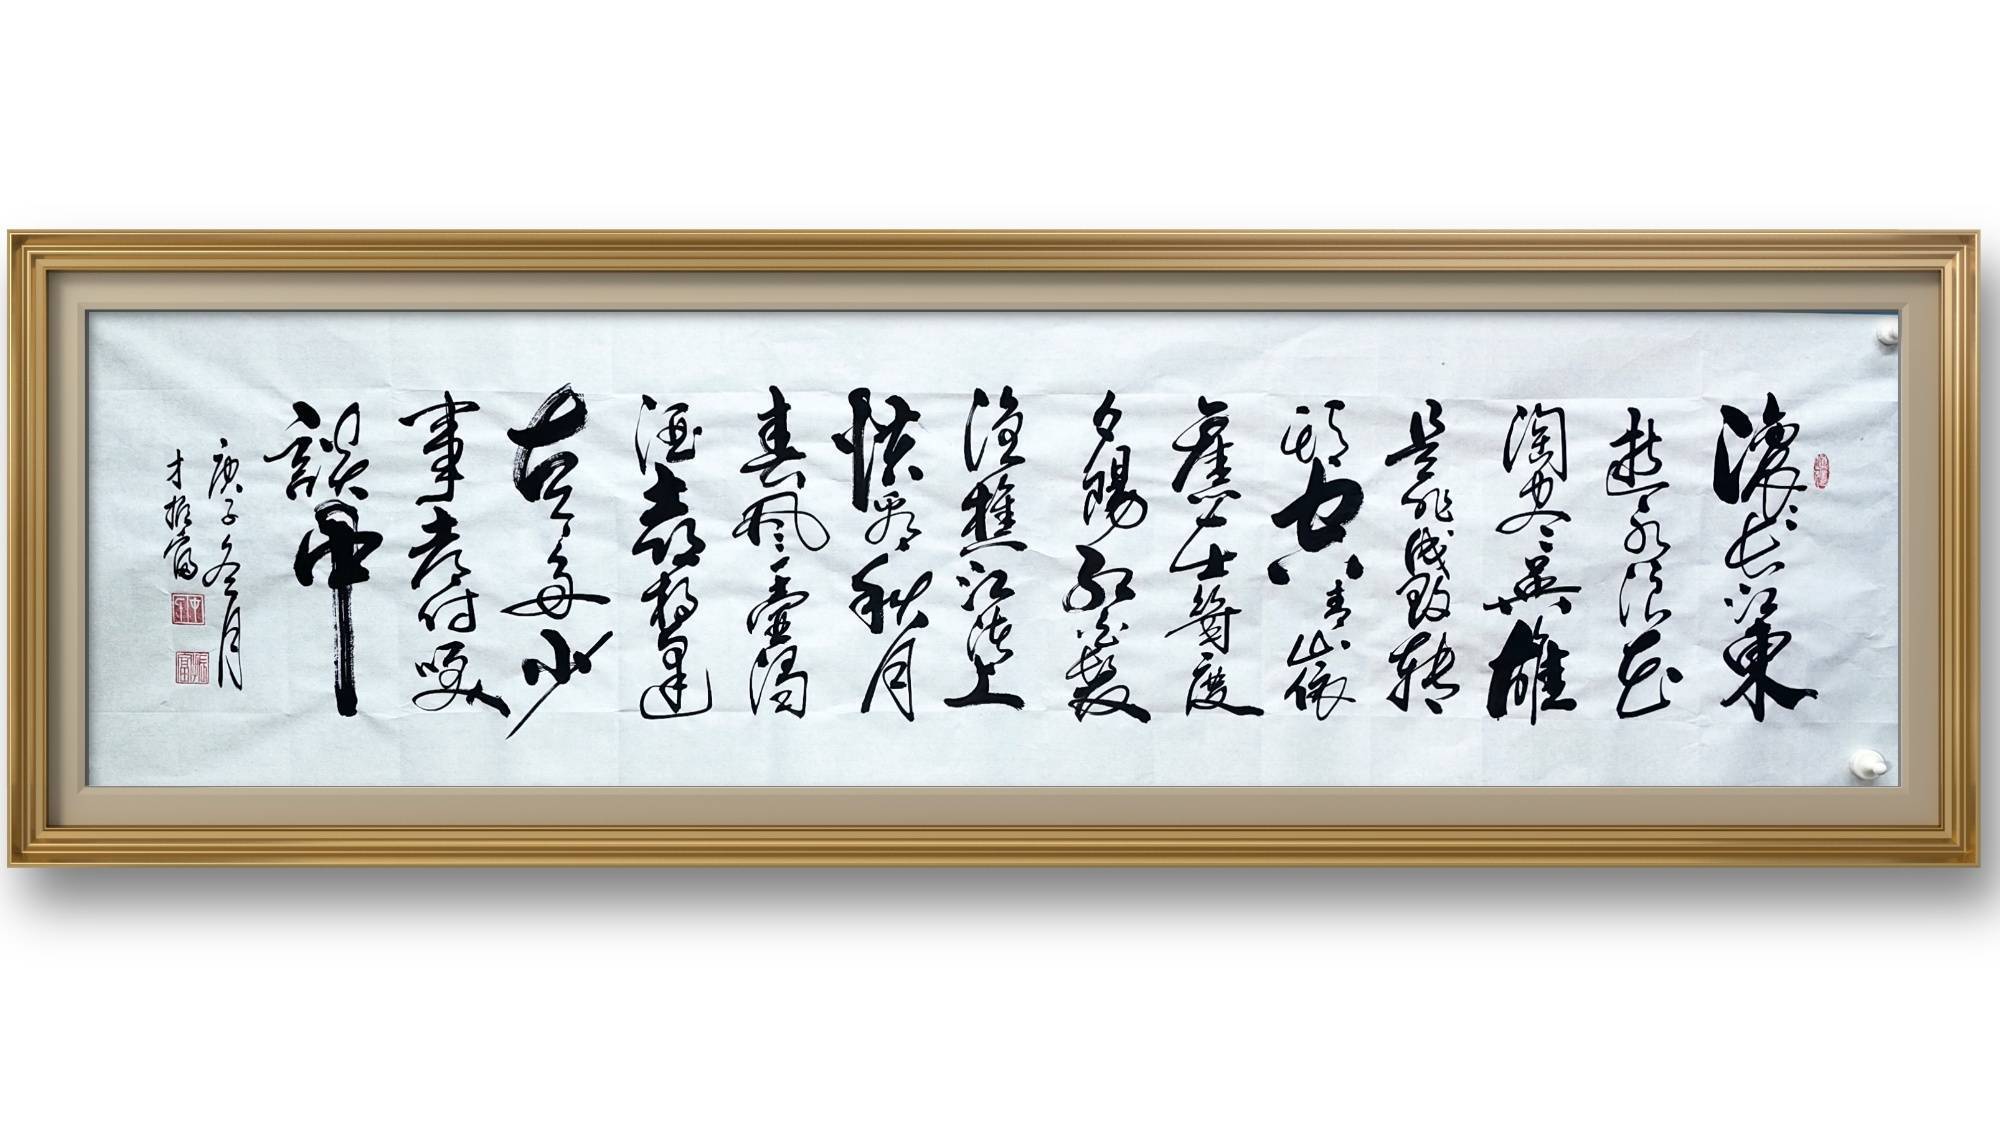 滚滚长江東
逝水浪花
淘尽英雄
是非成敗转
頭空青山依
舊在幾度
夕陽红白髮
渔樵江渚上
惯看秋月
春風一壶濁
酒喜相逢
古今多少
事都付咲
談中
庚子冬月
才振富